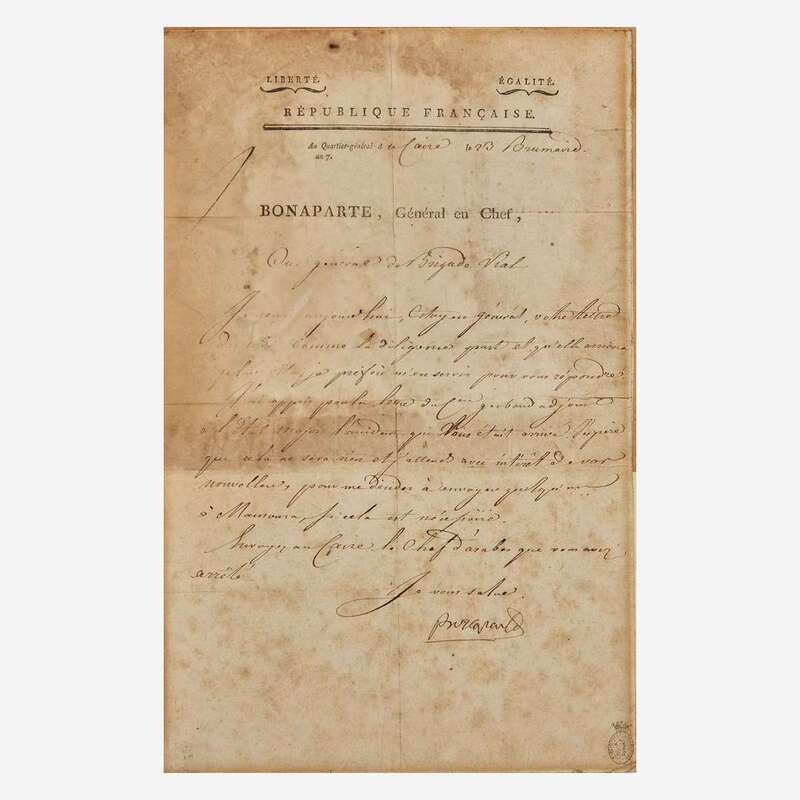 LIBERTÉ. ÉGALITÉ.
RÉPUBLIQUE FRANÇAISE.
Au Quartier-général d le Caire le 23 Brumaire
an 7.
BONAPARTE, Général en Chef,
Au général de Brigade Vial
Je aujourd'hui, Citoyen général, votre lettre
du Comme la diligence part et qu'elle arrivera
je préfère m'en servir pour vous répondre
J'ai appris par la lettre du Cen adjoint
à l'État major l'accident qui vous était arrivé J'espère
que cela ne sera rien et j'attends avec intérêt de vos
nouvelles, pour me décider à envoyer quelqu'un
à Mansoura, si cela est nécessaire.
Envoyez au Caire le Chef d'arabes que vous avez
arrêté
Je vous salue.